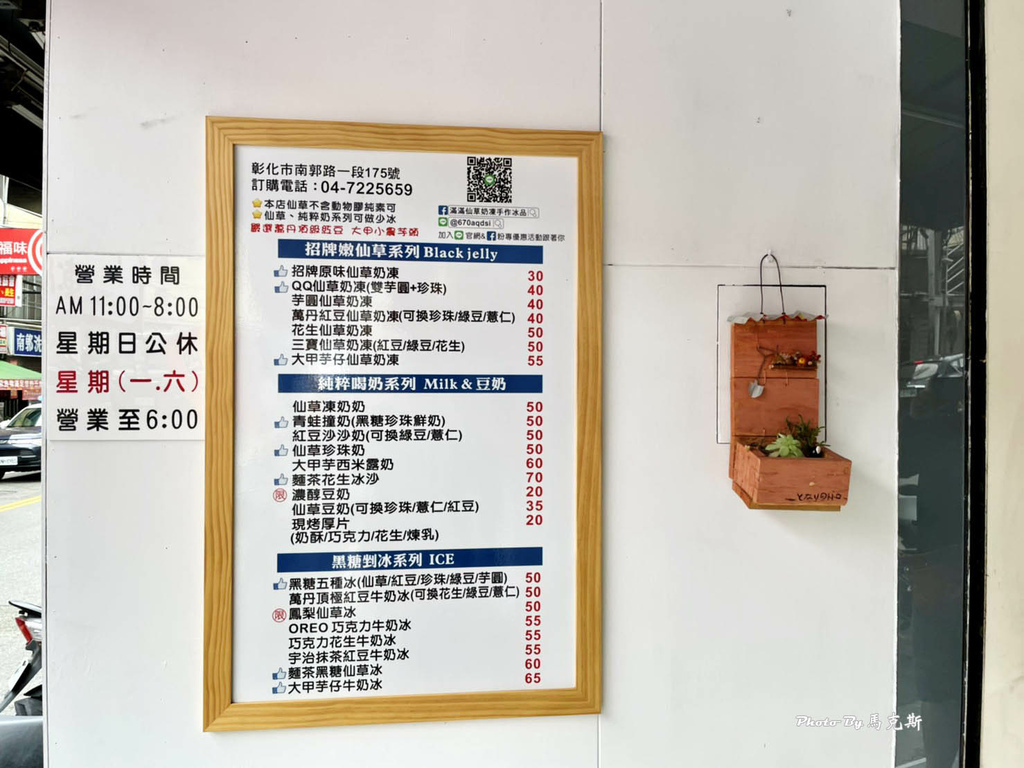 福味
南郭洗
營業時間
AM 11:00~8:00
星期日公休
星期(一.六)
營業至6:00
彰化市南郭路一段175號
訂購電話：04-7225659
本店仙草不含動物膠純素可
仙草、純粹奶系列可做少冰
嚴選萬丹頂級紅豆 大甲小農芋頭
滿滿仙草奶凍手作冰品
@670aqdsi
加入 官網& 粉專優惠活動跟著你
招牌嫩仙草系列 Black jelly
招牌原味仙草奶凍 30
QQ仙草奶凍(雙芋圓+珍珠) 40
芋圓仙草奶凍 40
萬丹紅豆仙草奶凍(可換珍珠/綠豆/薏仁) 40
花生仙草奶凍 50
三寶仙草奶凍(紅豆/綠豆/花生) 50
大甲芋仔仙草奶凍 55
純粹喝奶系列 Milk & 豆奶
仙草凍奶奶 50
青蛙撞奶(黑糖珍珠鮮奶) 50
紅豆沙沙奶(可換綠豆/薏仁) 50
仙草珍珠奶 50
大甲芋西米露奶 60
麵茶花生冰沙 70
限 濃醇豆奶 20
仙草豆奶(可換珍珠/薏仁/紅豆) 35
現烤厚片 20
(奶酥/巧克力/花生/煉乳)
黑糖剉冰系列 ICE
黑糖五種冰(仙草/紅豆/珍珠/綠豆/芋圓) 50
萬丹頂極紅豆牛奶冰(可換花生/綠豆/薏仁) 50
限 鳳梨仙草冰 50
OREO 巧克力牛奶冰 55
巧克力花生牛奶冰 55
宇治抹茶紅豆牛奶冰 55
麵茶黑糖仙草冰 60
大甲芋仔牛奶冰 65
Photo By 馬克斯